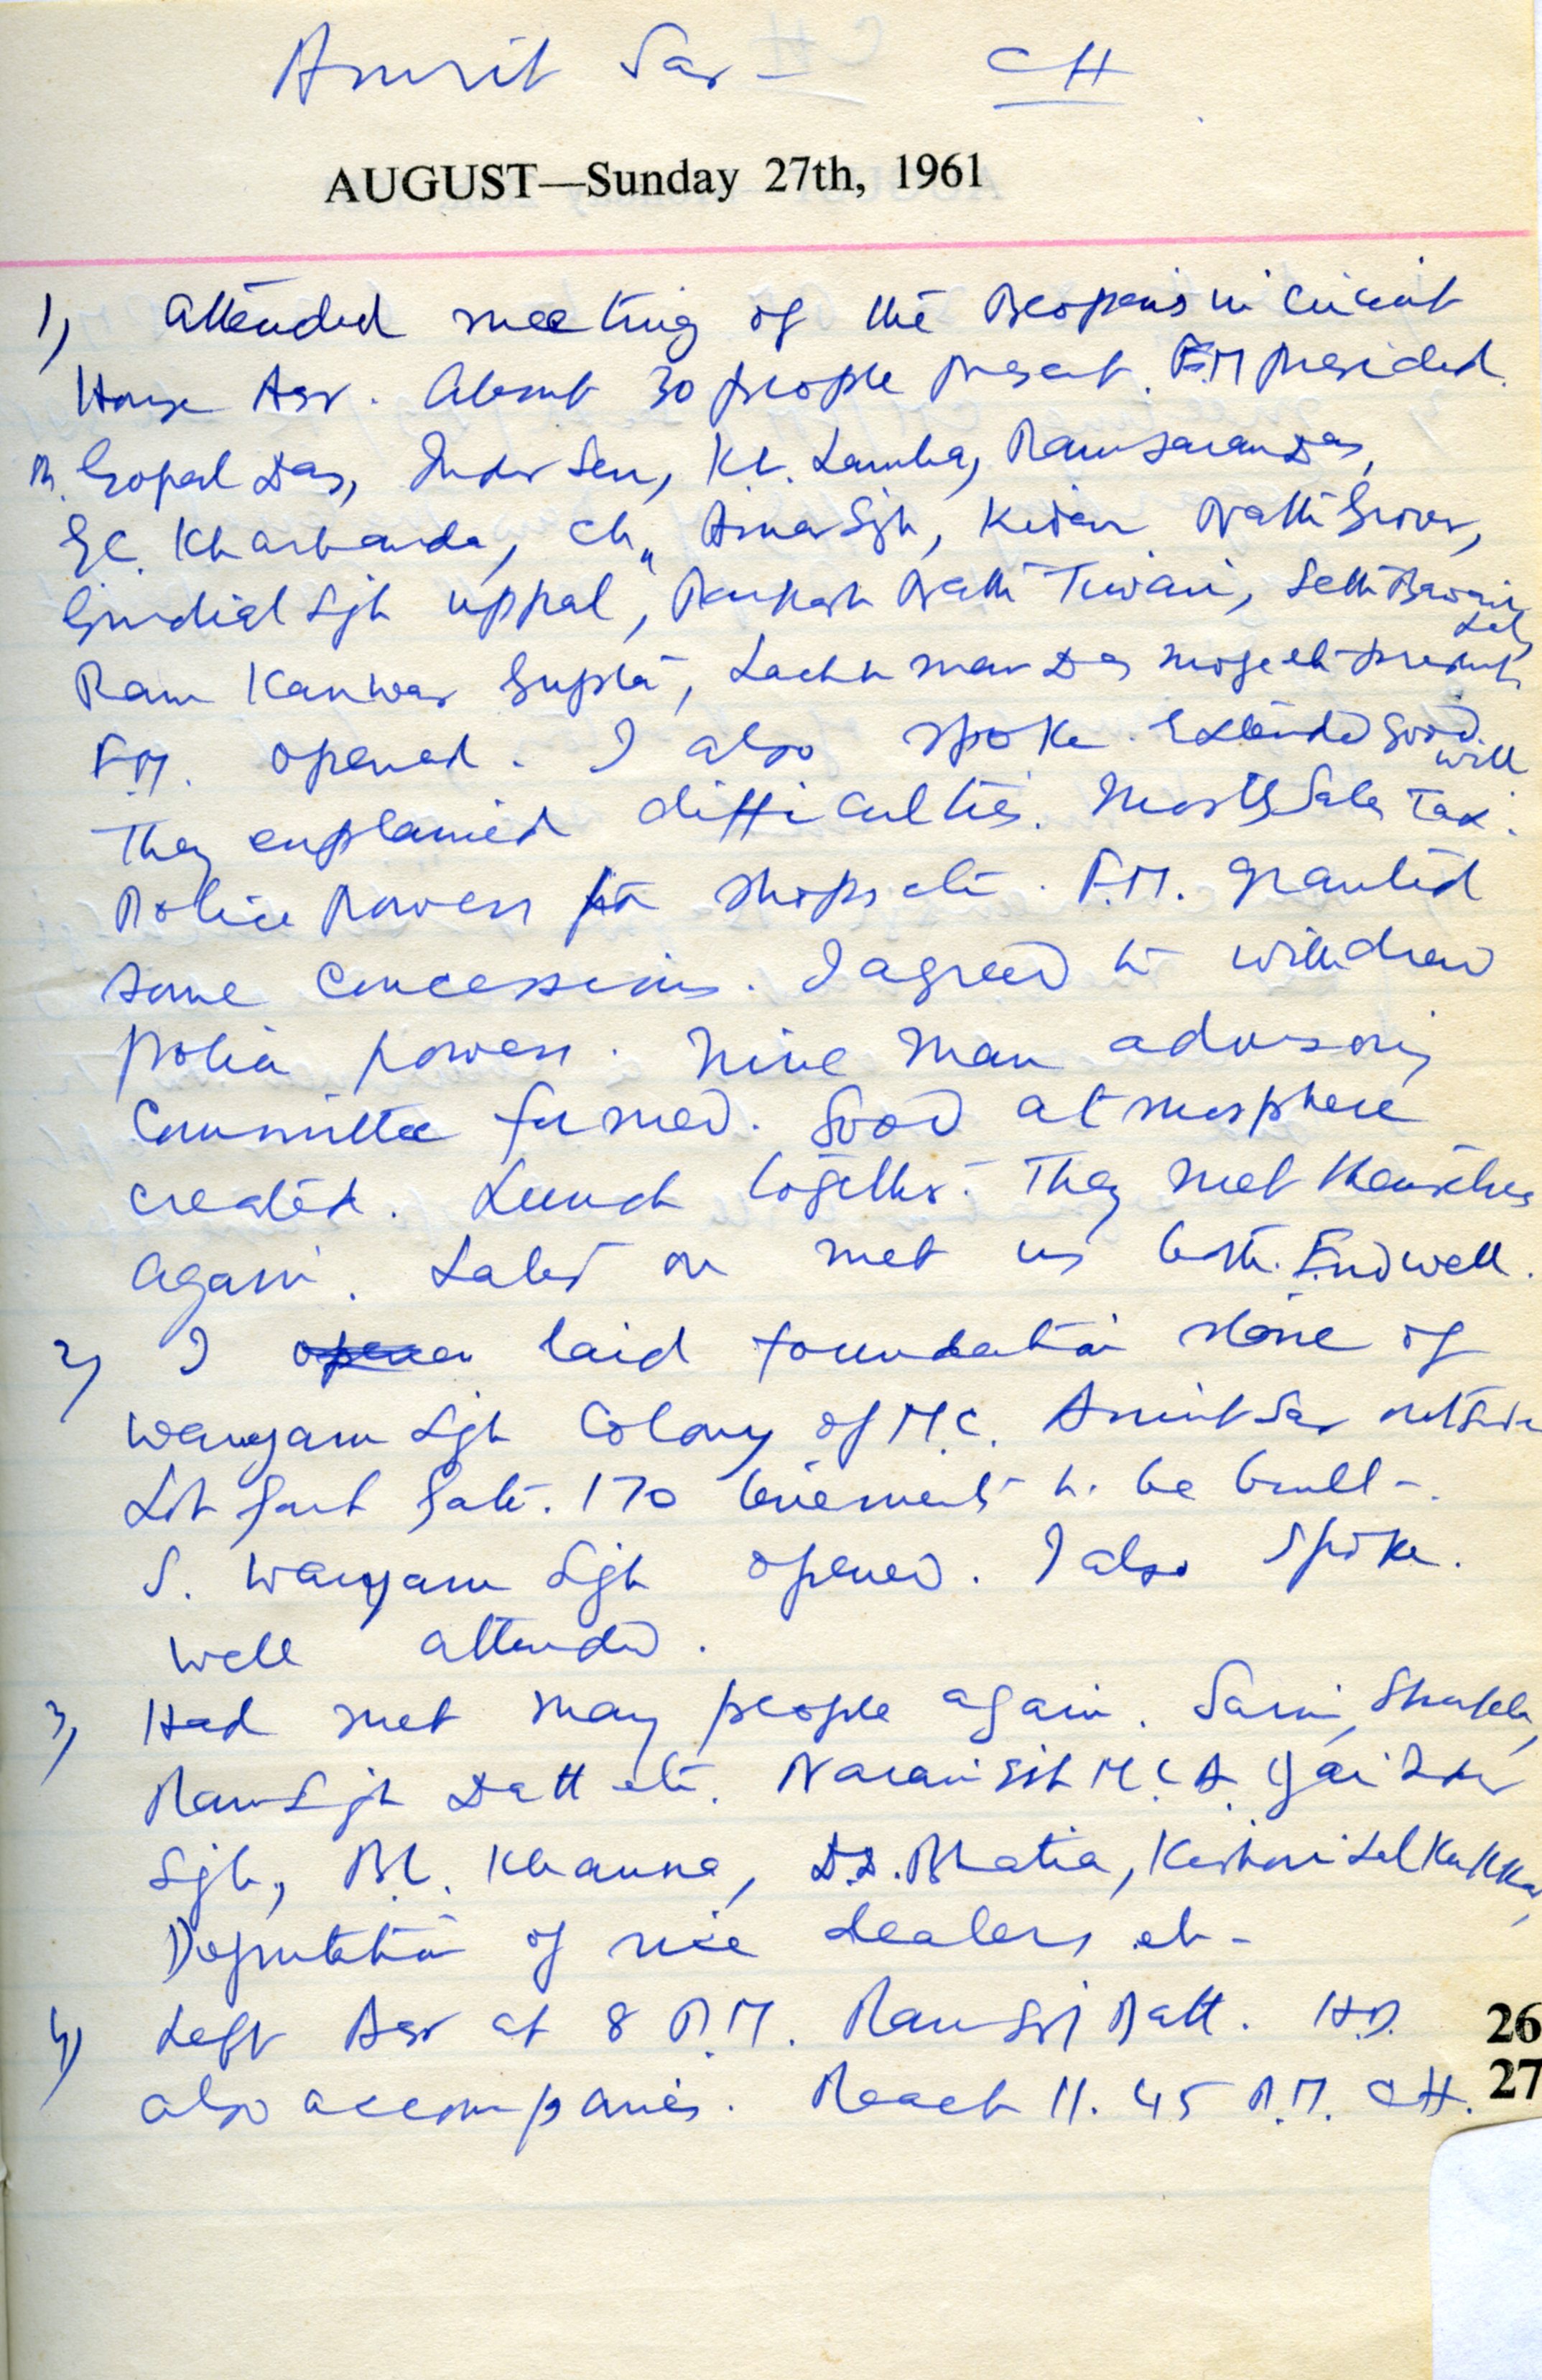 Amrit Sar — CH
AUGUST—Sunday 27th, 1961
1) Attended meeting of the Beoparis in Circuit
House Asr. About 30 people present. F.M presided.
Gopal Das, Inder Sen, K.L. Lamba, Ramsaran Das,
Kharbanda, Ch. Amar Sgh, Kidar Nath Grover,
Gurdial Sgh Uppal, Nath Tiwari, Seth
Lal,
Ram Kanwar Gupta, Lachhman Das present
F.M. opened. I also spoke. Extended good
will
They explained difficulties. Mostly Sales Tax.
Police Powers shops etc. F.M. granted
some concessions. I agreed to withdraw
police powers. Nine man advisory
Committee formed. Good atmosphere
created. Lunch together. They met themselves
again. Later on met us both. End well.
2) I laid foundation stone of
Waryam Sgh Colony of M.C. Amrit Sar outside
Gate. 170 tenements to be built.
S. Waryam Sgh opened. I also spoke.
Well attended.
3) Had met many people again. Saini, Shukla,
Ram Sgh Datt etc. Narain Sgh Jai Inder
Sgh, B.L. Khanna, Bhatia, Kishori Lal Kakkar,
Deputation of rice dealers etc
4) Left Asr at 8 P.M. Ram Sgh Datt. 26
also accompanies. Reach 11.45 P.M. CH. 27